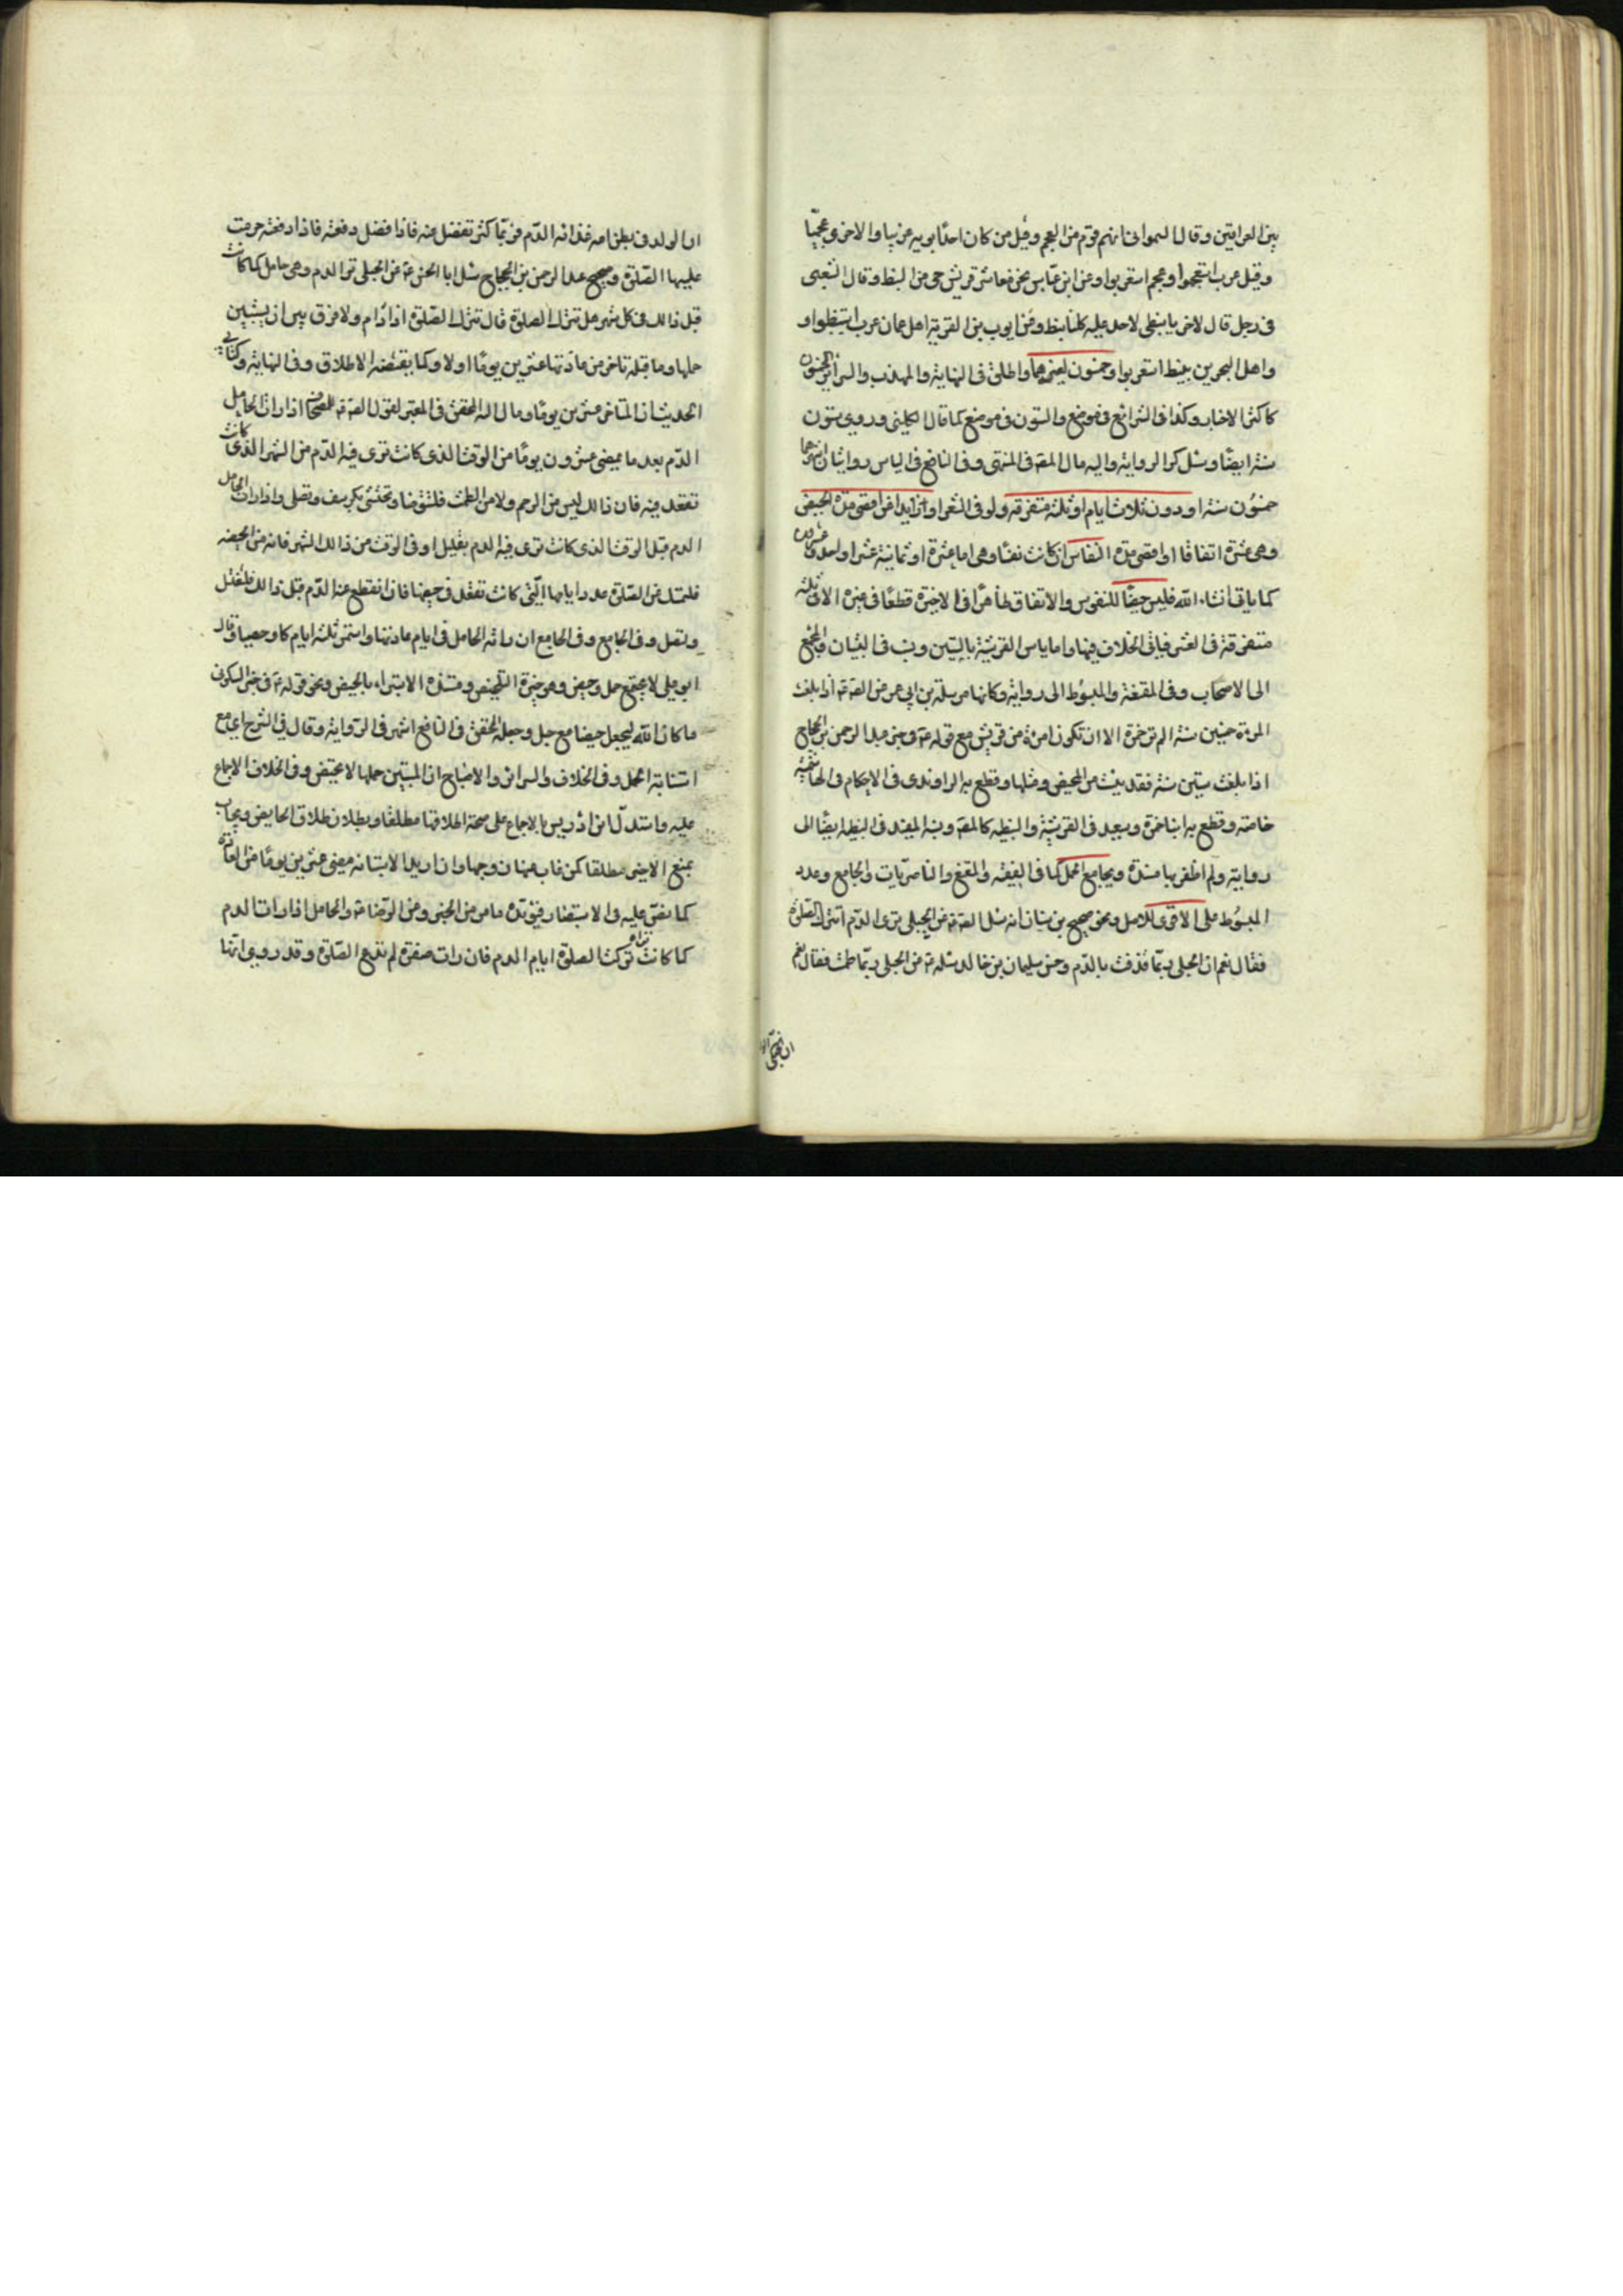 بين العراقين وقال السمعاني انهم قوم من العجم وقيل من كان احد ابويه عربيا والاخر عجميا
وقيل عرب استعجموا وعجم استعربوا وعن ابن عباس نحن معاشر قريش حي من النبط وقال الشعبي
في رجل قال لاخر يا نبطي لاحد عليه كلنا نبط وعن ايوب بن القرية اهل عمان عرب استنبطوا و
واهل البحرين نبيط استعربوا وخمسون لغيرهما واطلق في النهاية والمهذب والسرائر الخمسون
كاكثر الاخبار وكذا في الشرائع في موضع والستون في موضع كما قال الكليني وروي ستون
سنة ايضا وسئل كر الرواية واليه مال المصة في المنتهى وفي النافع في الياس روايتان اشهرهما
خمسون سنة او دون ثلاث ايام او ثلثة متفرقة ولو في العشر او زايدا عن اقصى مدة الحيض
وهي عشرة اتفاقا او اقصى مدة النفاس ان كانت نفسا وهي اما عشرة او ثمانية عشر او احد وعشرون
كما ياتي انشاء الله فليس حيضا للنصوص والاتفاق ظاهرا في الاخيرة قطعا في غيره الا في ثلثة
متفرقة في العشر فياتي الخلاف فيها واما ياس القرشية بالستين ونسب في التبيان والمجمع
الى الاصحاب وفي المقنعة والمبسوط الى رواية وكانها مرسلة بن ابي عمير عن الصة ع اذا بلغت
المرءة خمسين سنة لم تر حمرة الا ان تكون امرءة من قريش مع قوله ع وخبر عبد الرحمن بن الحجاج
اذا بلغت ستين سنة فقد يئست من المحيض ومثلها وقطع به الراوندي في الاحكام في الهاشمية
خاصة وقطع به ابنا حمزة وسعيد في القرشية والنبطيه كالمصة ونسبه المفيد في النبطيه ايضا الى
رواية ولم اظفر بها مسندة ويجامع الحمل كما في الفقيه والمقنع والناصريات والجامع وعدد
المبسوط على الاقوى للاصل ونحو صحيح بن سنان انه سئل الصة ع عن الحبلى ترى الدم اتترك الصلوة
فقال نعم ان الحبلى ربما قذفت بالدم وخبر سليمان بن خالد سئله ع عن الحبلى ربما طمثت فقال نعم
ان الولد في بطن امه غذائه الدم فربما كثر تفضل عنه فاذا فضل دفعته فاذا دفعته حرمت
عليها الصلوة وصحيح عبد الرحمن بن الحجاج سئل ابا الحسن ع عن الحبلى ترى الدم وهي حامل كما كانت
قبل ذالك في كل شهر هل تترك الصلوة قال تترك الصلوة اذا دام ولا فرق بين ان يستبين
حملها وما قبله تاخر من عادتها عشرين يوما او لا وكما يقتضيه الاطلاق وفي النهاية وكتابي
الحديث ان المتاخر عشرين يوما وما ل اله المحقق في المعتبر لقول الصة ع للصحاف اذا رات الحامل
الدم بعد ما يمضي عشرون يوما من الوقت الذي كانت ترى فيه الدم من الشهر الذي كانت
تقعد فيه فان ذالك ليس من الرحم ولا من الطمث فلتتوضا وتحتشي بكرسف وتصلي واذا رات الحامل
الدم قبل الوقت الذي كانت ترى فيه الدم بقليل او في الوقت من ذالك الشهر فانه من الحيضه
فلتمسك عن الصلوة عدد ايامها التي كانت تقعد في حيضها فان انقطع عنها الدم قبل ذالك فلتغتسل
ولتصل وفي الجامع وفي الجامع ان رأته الحامل في ايام عادتها واستمر ثلثة ايام كان حيضا وقال
ابو علي لا يجتمع حمل وحيض وهو خيرة التلخيص ومستنده الاستبراء بالحيض ونحو قوله ع في خبر السكوني
ما كان الله ليجعل حيضا مع حبل وجعله المحقق في النافع اشهر في الرواية وقال في الشرح اي مع
استبانة الحمل وفي الخلاف والسرائر والاصباح ان المستبين حملها لا تحيض وفي الخلاف الاجماع
عليه واستدل ابن ادريس بالاجماع على صحة طلاقها مطلقا وبطلان طلاق الحايض ويجاب
بمنع الاخير مطلقا كمن غاب عنها زوجها وان اريد الاستبانه بمضي عشرين يوما من العادة
كما نص عليه في الاستبصار فيؤيده ما مر من الخبر وعن الرضا ع والحامل اذا رات الدم
كما كانت تراه تركت الصلوة ايام الدم فان رات صفرة لم تدع الصلوة وقد روي انها